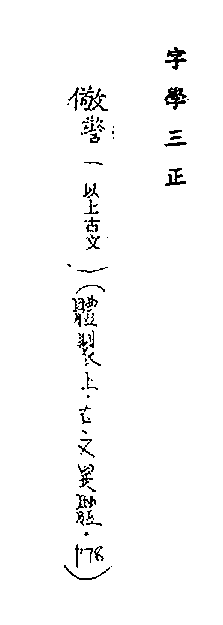 字學三正
儆警一以上古文一(體製上.古文異體.178)